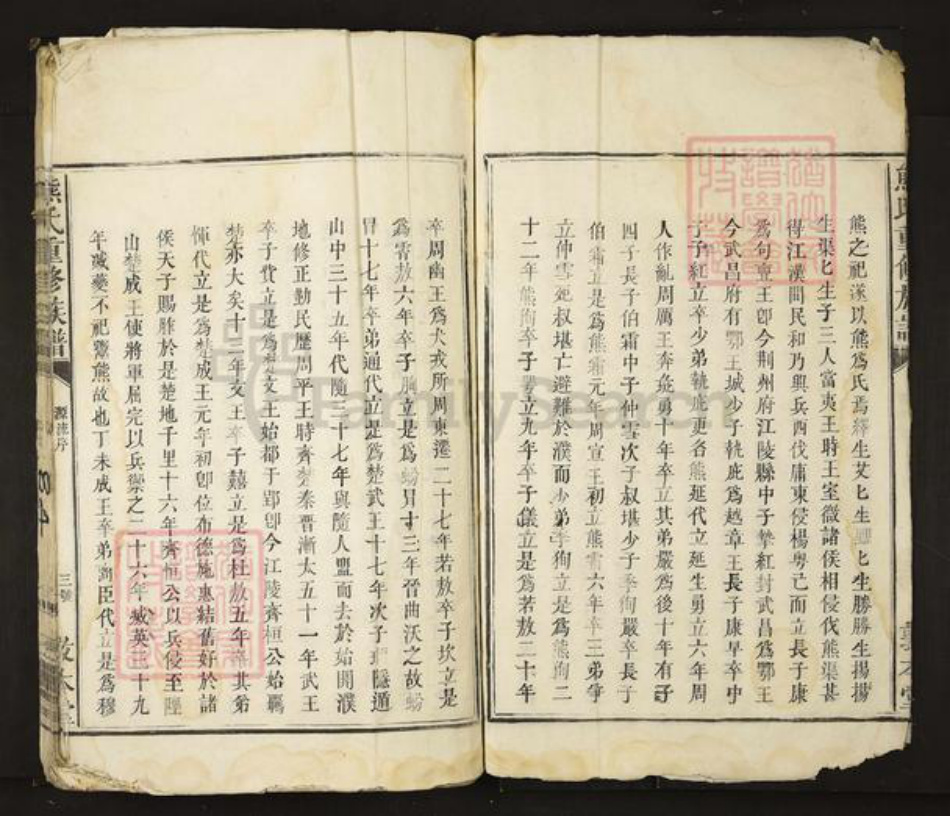 熊之祀遂以熊爲氏焉繹生艾匕生䵣匕生勝勝生揚揚
生渠匕生子三人當夷王時王室微諸侯相侵伐熊渠甚
得江漢間民和乃興兵西伐庸東侵楊粵己而立長子康
爲句亶王卽今荆州府江陵縣中子摯紅封武昌爲鄂王
今武昌府有鄂王城少子執庇爲越章王長子康早卒中
子子紅立卒少弟執庇更名熊延代立延生勇立六年周
人作亂周厲王奔彘勇十年卒立其弟嚴爲後十年有子
四子長子伯霜中子仲雪次子叔堪少子季徇嚴卒長子
伯霜立是爲熊霜元年周宣王初立熊霜六年卒三弟爭
立仲雪死叔堪亡避難於濮而少弟季徇立是爲熊徇二
十二年熊徇卒子咢立九年卒子儀立是爲若敖二十年
卒周幽王爲犬戎所周東遷二十七年若敖卒子坎立是
爲霄敖六年卒子眴立是爲蚡冒十三年晉曲沃之故蚡
冒十七年卒弟通代立是爲楚武王十七年次子瑕隱遁
山中三十五年代隨三十七年與隨人盟而去於始開濮
地修正勤民歷周平王時齊楚秦晋漸大五十一年武王
卒子貲立是爲楚文王始都于郢卽今江陵齊桓公始霸
楚亦大矣十二年文王卒子囏立是爲杜敖五年弑其弟
惲代立是爲楚成王元年初卽位布德施惠結舊好於諸
侯天子賜胙於是楚地千里十六年齊恒公以兵侵至陘
山楚成王使將軍屈完以兵禦之二十六年滅英三十九
年滅夔不祀鬻熊故也丁未成王卒弟商臣代立是爲穆
熊氏重修族譜
源流序
三號
敦本堂
FamilySearch